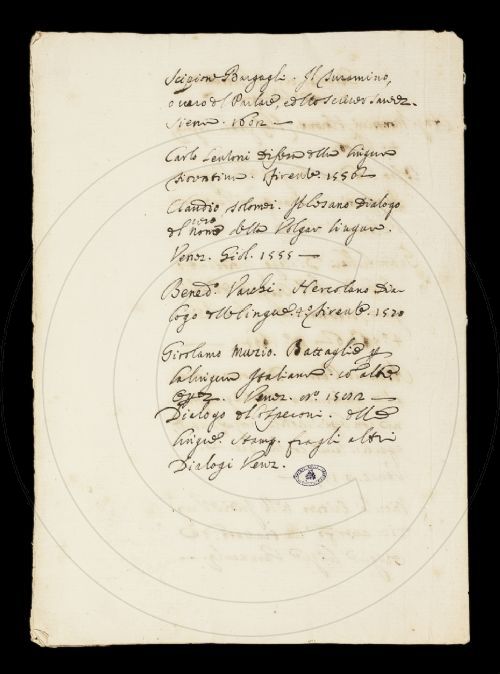 Scipione Bargagli. Il Turamino,
overo del Parlar, e dello scriver Sanez.
Siena. 1602 —
Carlo Lentoni difesa della lingua
fiorentina. Firenze. 1556
Claudio Tolomei. Il Cesano Dialogo
del nome della Volgar lingua.
vero
Venez. Giol. 1555 —
Bened. Varchi. Hercolano Dia-
logo delle lingue. 4.º Firenze. 1570
Girolamo Muzio. Battaglie p
la lingua Italiana. co altre
Venez. 1582 —
Dialogo del Speroni. delle
lingue. stamp. fra gli altri
Dialogi Venez.